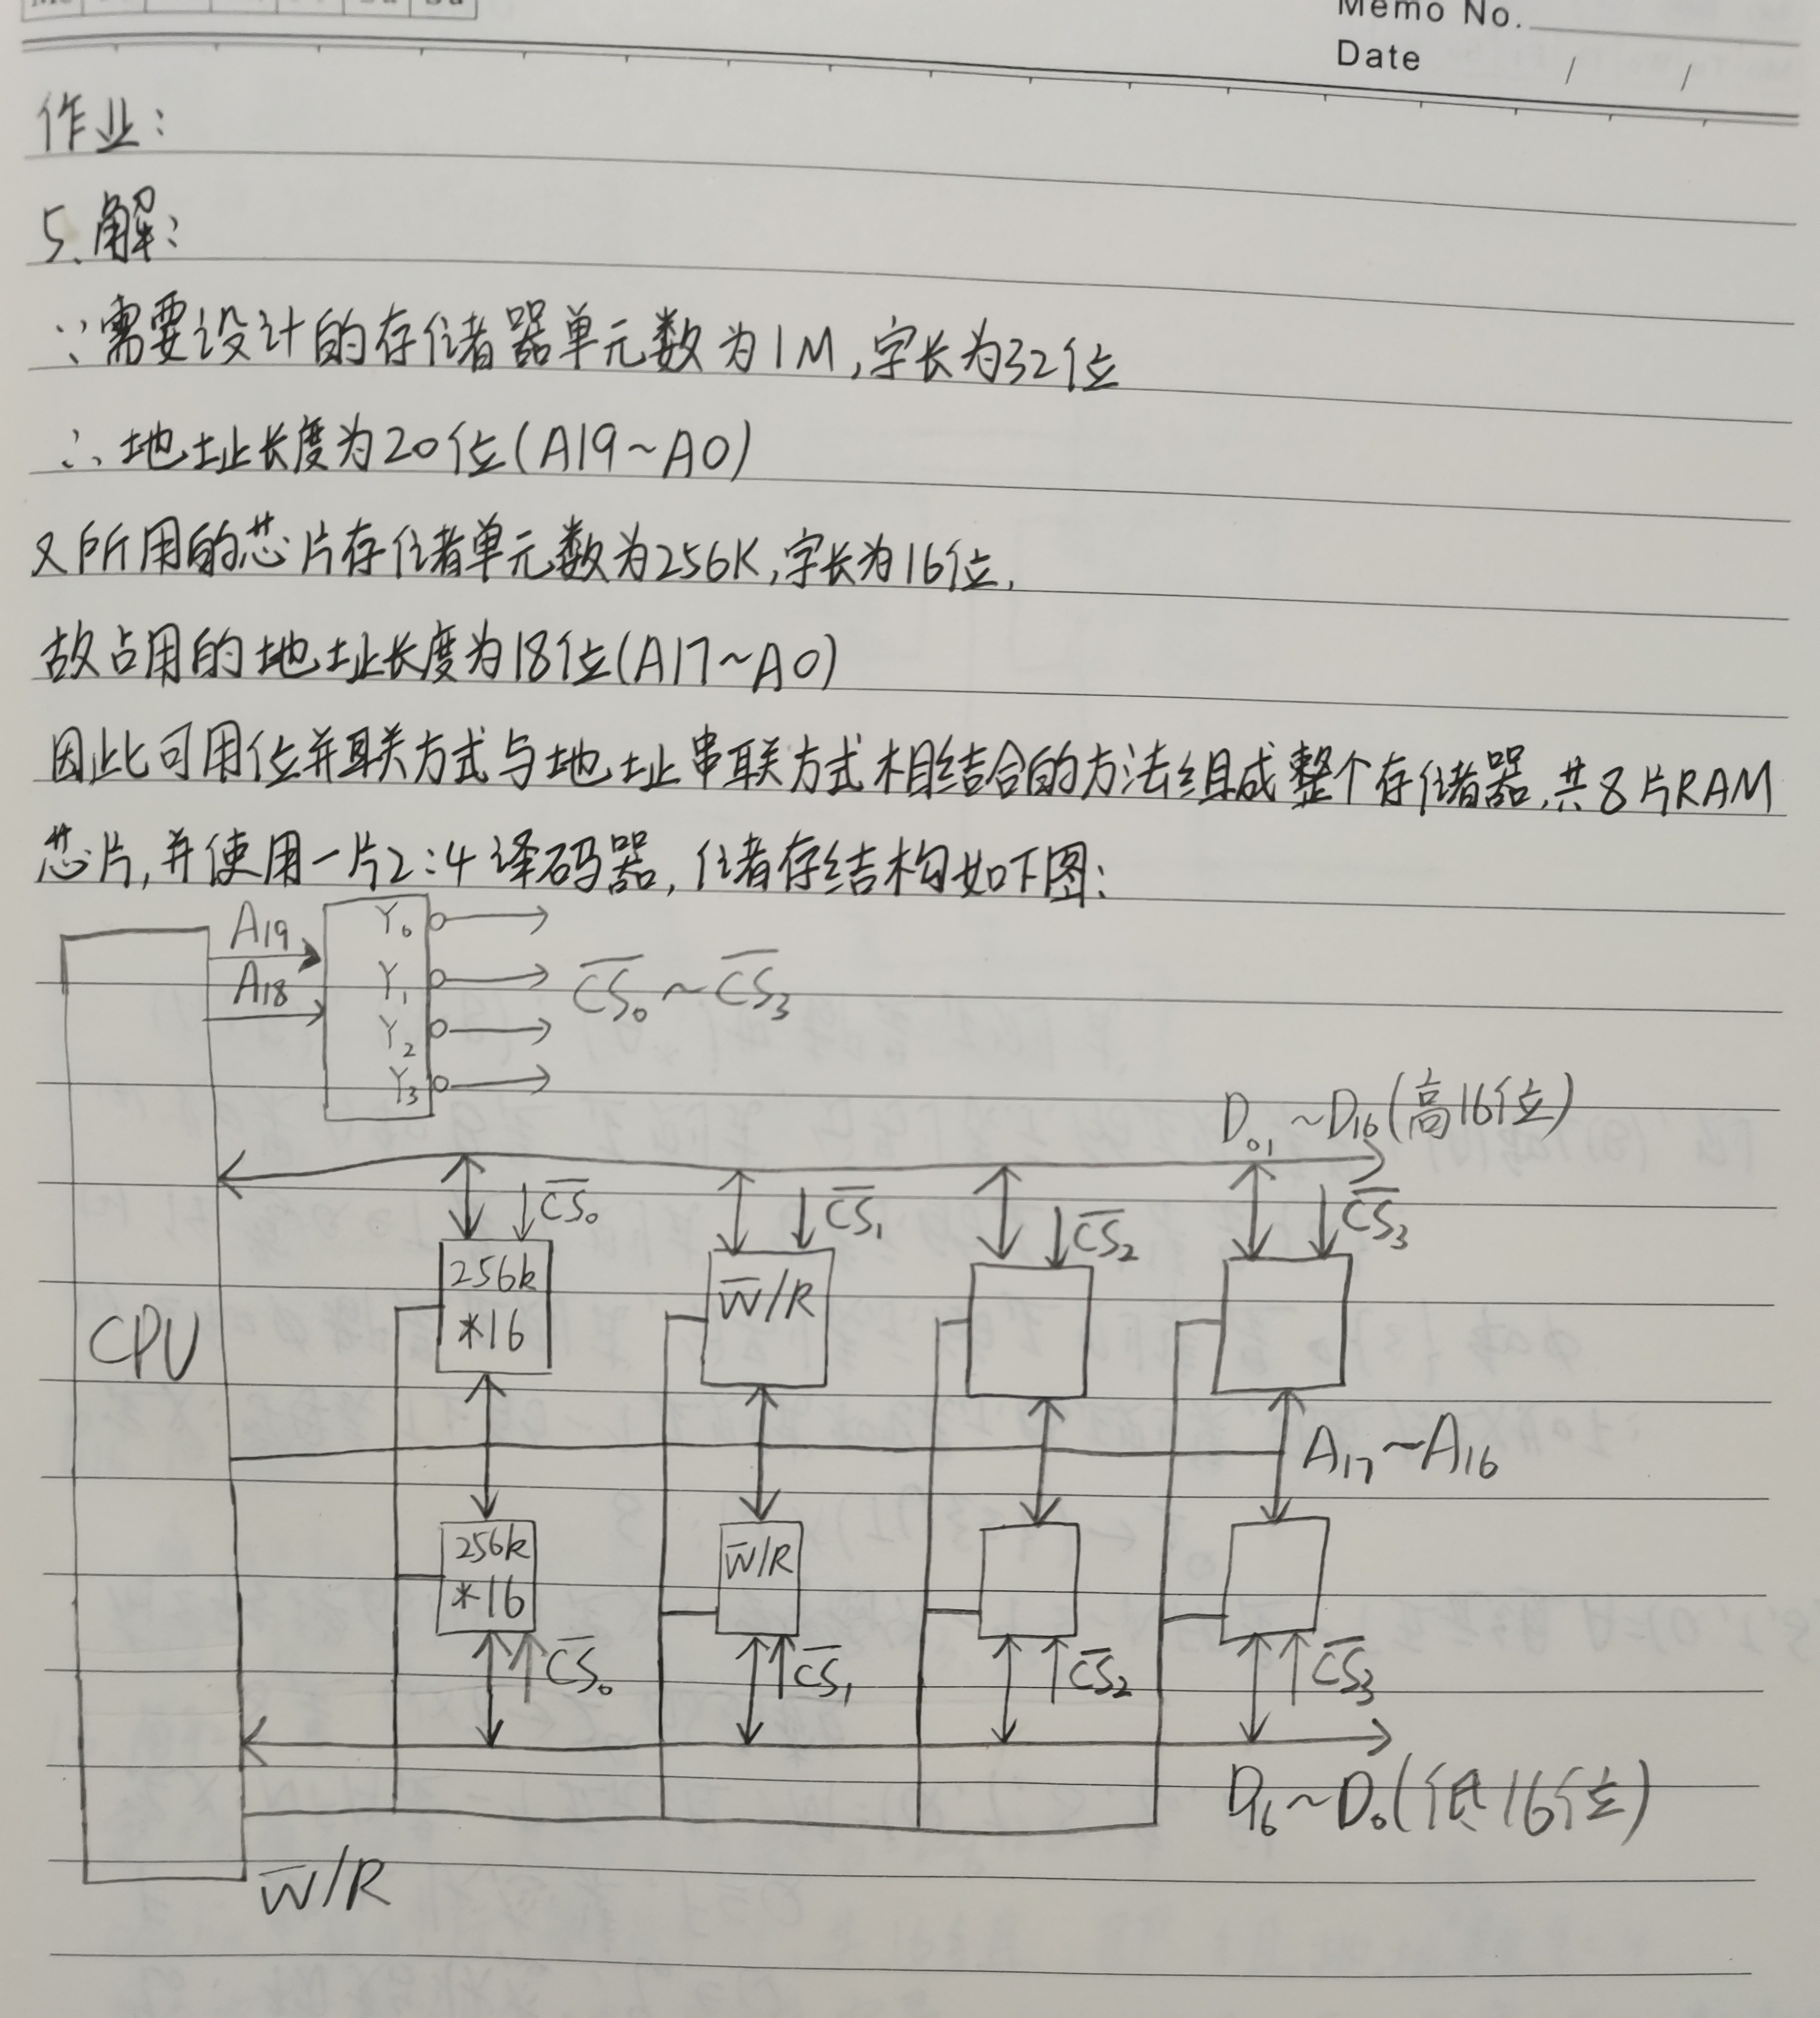 Memo No.
Date / /
作业:
5.解:
∵需要设计的存储器单元数为1M,字长为32位
∴地址长度为20位(A19~A0)
又所用的芯片存储单元数为256K,字长为16位,
故占用的地址长度为18位(A17~A0)
因此可用位并联方式与地址串联方式相结合的方法组成整个存储器,共8片RAM
芯片,并使用一片2:4译码器,储存结构如下图:
A19
A18
Y₀
Y₁
Y₂
Y₃
C̅S̅₀~C̅S̅₃
D₀₁~D₁₆(高16位)
C̅S̅₀ C̅S̅₁ C̅S̅₂ C̅S̅₃
256k
*16
W̅/R
CPU
A₁₇~A₁₆
256k
*16
W̅/R
C̅S̅₀ C̅S̅₁ C̅S̅₂ C̅S̅₃
D₁₆~D₀(低16位)
W̅/R